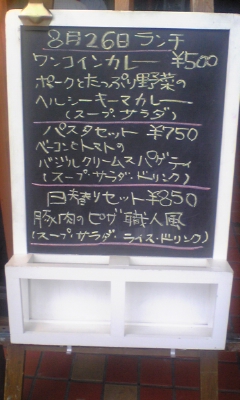 8月26日 ランチ
ワンコインカレー ¥500
ポークとたっぷり野菜の
ヘルシーキーマカレー
(スープ・サラダ)
パスタセット ¥750
ベーコンとトマトの
バジルクリームスパゲティ
(スープ・サラダ・ドリンク)
日替りセット ¥850
豚肉のピザ職人風
(スープ・サラダ・ライス・ドリンク)